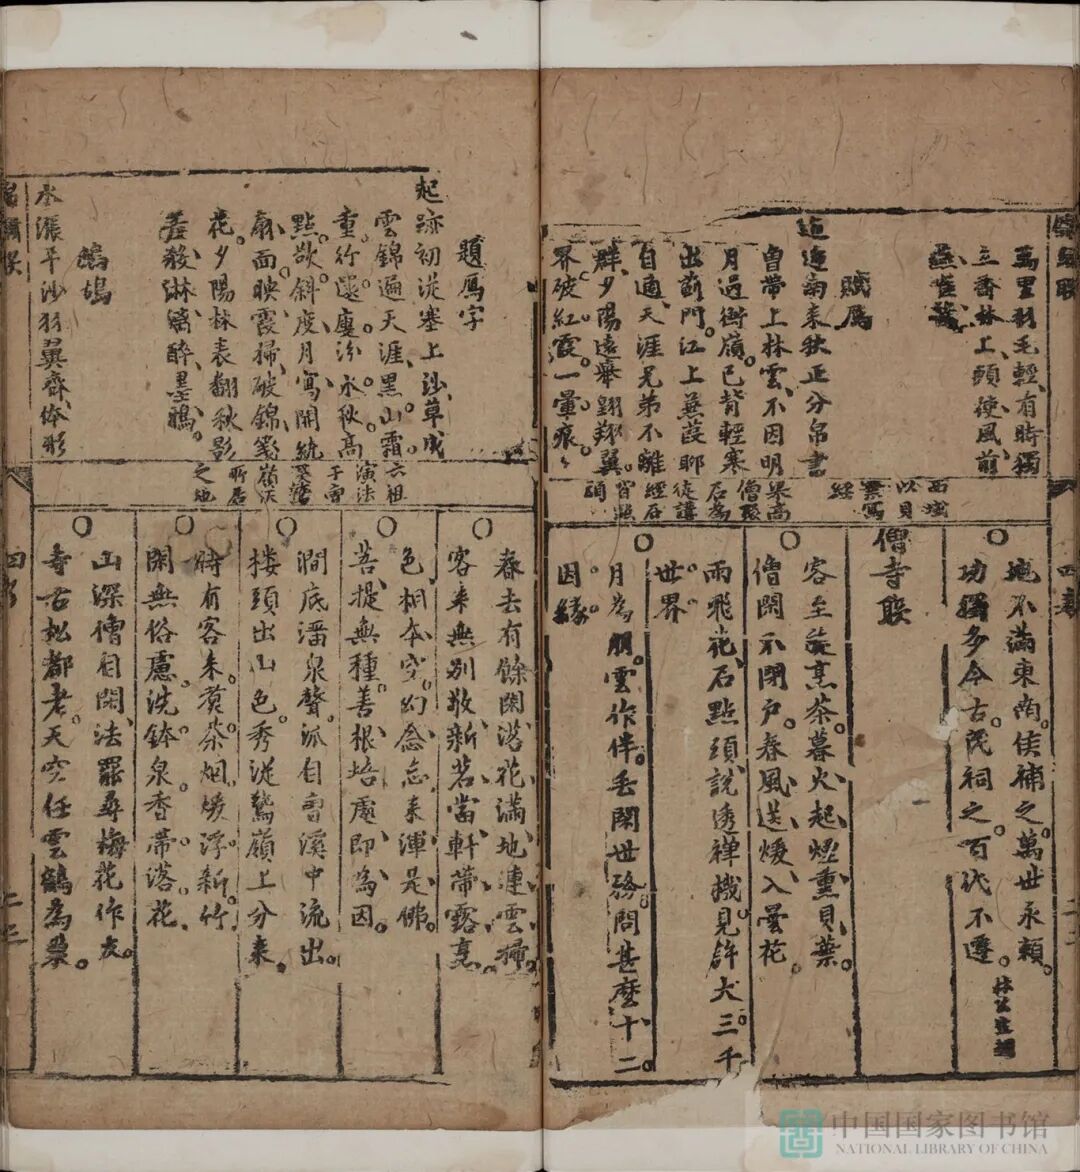 萬里羽毛輕、有時獨
立喬林上、頭使風前
燕雀驚
賦鴈
迢迢南来秋正分帛書
曾帶上林雲、不因明
月過衡嶺、已背輕寒
出薊門。江上蒹葭聊
自適、天涯兄弟不離
群、夕陽遠舉翱翔翼。
界破紅霞一暈痕、
西域
以貝
葉寫
經
生高
僧聚
石為
徒講
經石
皆點
頭
地不滿東南。侯補之。萬世永賴。
功獨多今古。民祠之。百代不遷。
僧寺聯
客至旋烹茶。暮火起煙熏貝葉。
僧閑不閉戶。春風送煖入曇花。
雨飛花、石點頭說透禪機。見許大三千
世界
月為朋。雲作伴丢閑世務。問甚麼十二
因緣。
題鴈字
起跡初從塞上沙、草成
雲錦遍天涯、黑山霜
重行還蹇、汾水秋高
點欲斜。度月寫開紈
扇面、映霞掃破錦箋
花。夕陽林表翻秋影
羞殺淋漓醉墨鴉。
鷓鴣
水漲平沙羽翼齊、体形
六祖
演法
于曹
溪鷲
嶺沃
所居
之地
春去有餘閑落花滿地連雲掃。
客来無別敬新茗當軒帶露烹。
色相本空。幻念忘来渾是佛。
菩提無種。善根培處即為因。
澗底潘泉聲。派自曹溪中流出。
樓頭出山色。秀從鷲嶺上分来。
時有客来。煑茶烟煖浮新竹
閑無俗慮。洗鉢泉香帶落花
山深僧自閑、法罷尋梅花作友。
寺古松都老。天空任雲鶴為羣。
四卷